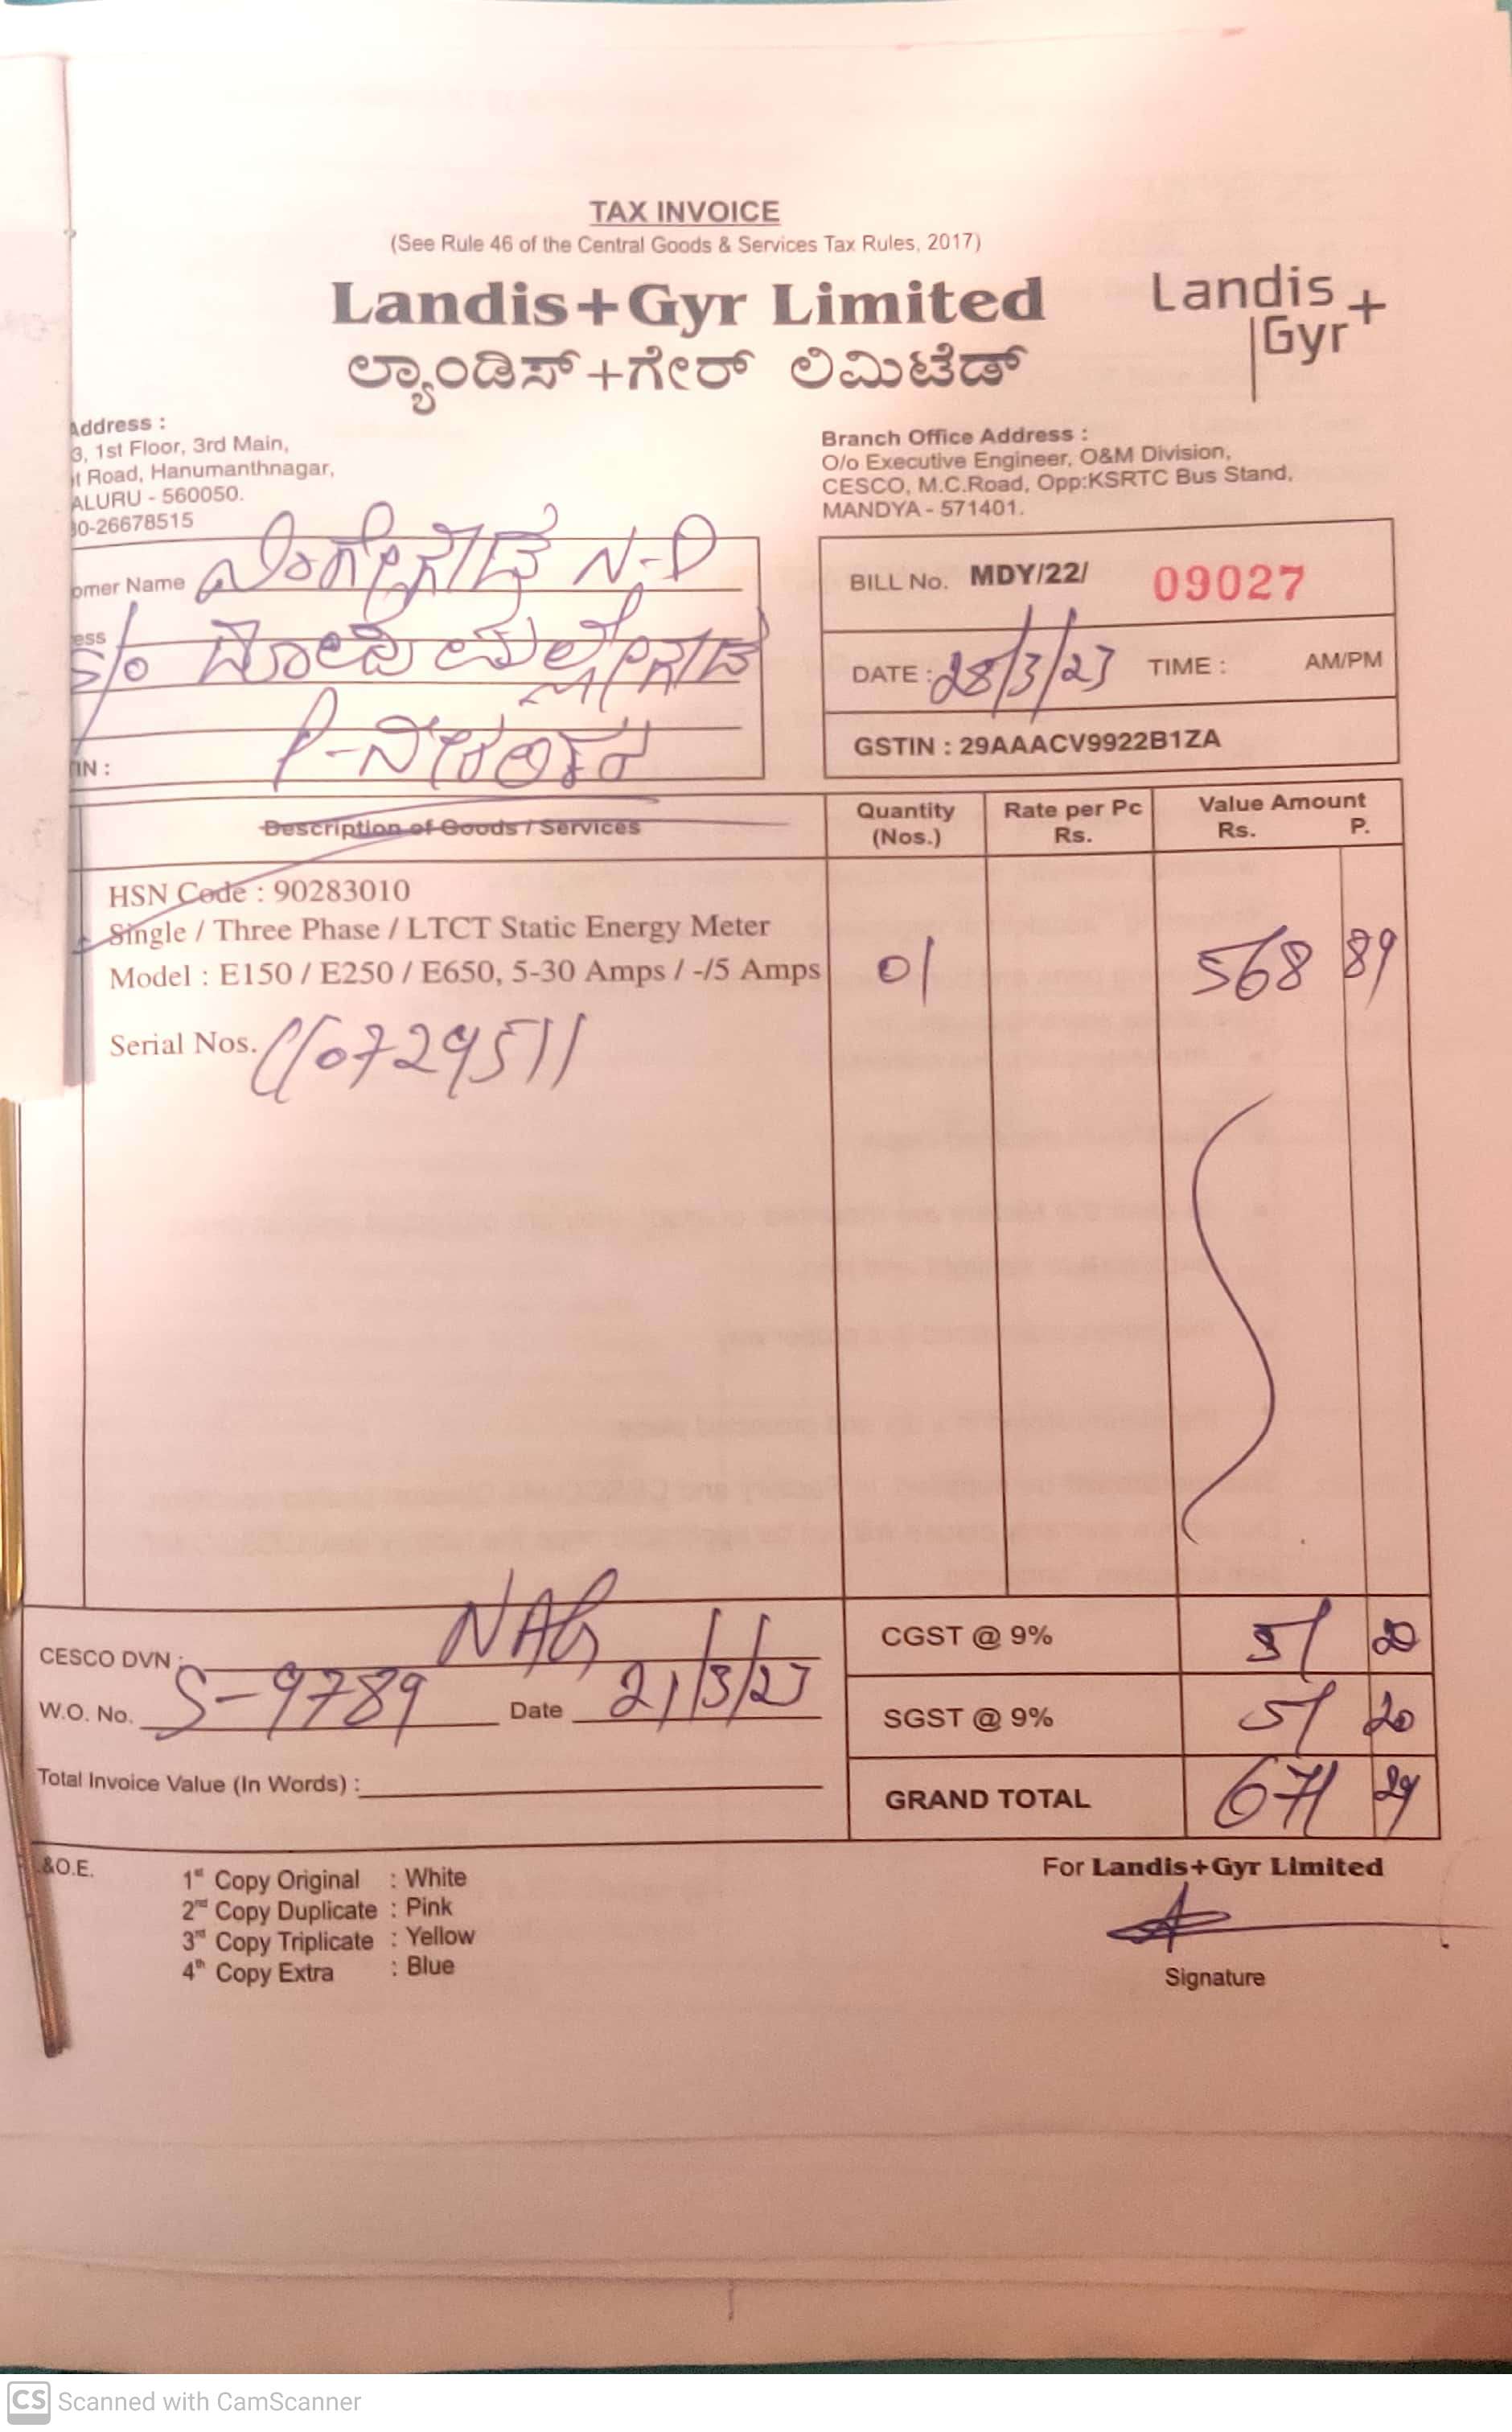 TAX INVOICE
(See Rule 46 of the Central Goods & Services Tax Rules, 2017)
Landis+Gyr Limited
ಲ್ಯಾಂಡಿಸ್+ಗೇರ್ ಲಿಮಿಟೆಡ್
Landis+
Gyr
Address :
3, 1st Floor, 3rd Main,
t Road, Hanumanthnagar,
ALURU - 560050.
0-26678515
Branch Office Address :
O/o Executive Engineer, O&M Division,
CESCO, M.C.Road, Opp:KSRTC Bus Stand,
MANDYA - 571401.
omer Name ಲಿಂಗೇಗೌಡ N-D
ess
S/o
IN :
BILL No. MDY/22/ 09027
DATE : 28/3/23 TIME : AM/PM
GSTIN : 29AAACV9922B1ZA
Description of Goods / Services
Quantity (Nos.)
Rate per Pc Rs.
Value Amount Rs. P.
HSN Code : 90283010
Single / Three Phase / LTCT Static Energy Meter
Model : E150 / E250 / E650, 5-30 Amps / -/5 Amps 01 568 89
Serial Nos.
CESCO DVN : NAG
W.O. No. S-9789 Date 21/3/23
Total Invoice Value (In Words) :
CGST @ 9% 51 20
SGST @ 9% 51 20
GRAND TOTAL 671 29
&O.E.
1st Copy Original : White
2nd Copy Duplicate : Pink
3rd Copy Triplicate : Yellow
4th Copy Extra : Blue
For Landis+Gyr Limited
Signature
CS Scanned with CamScanner